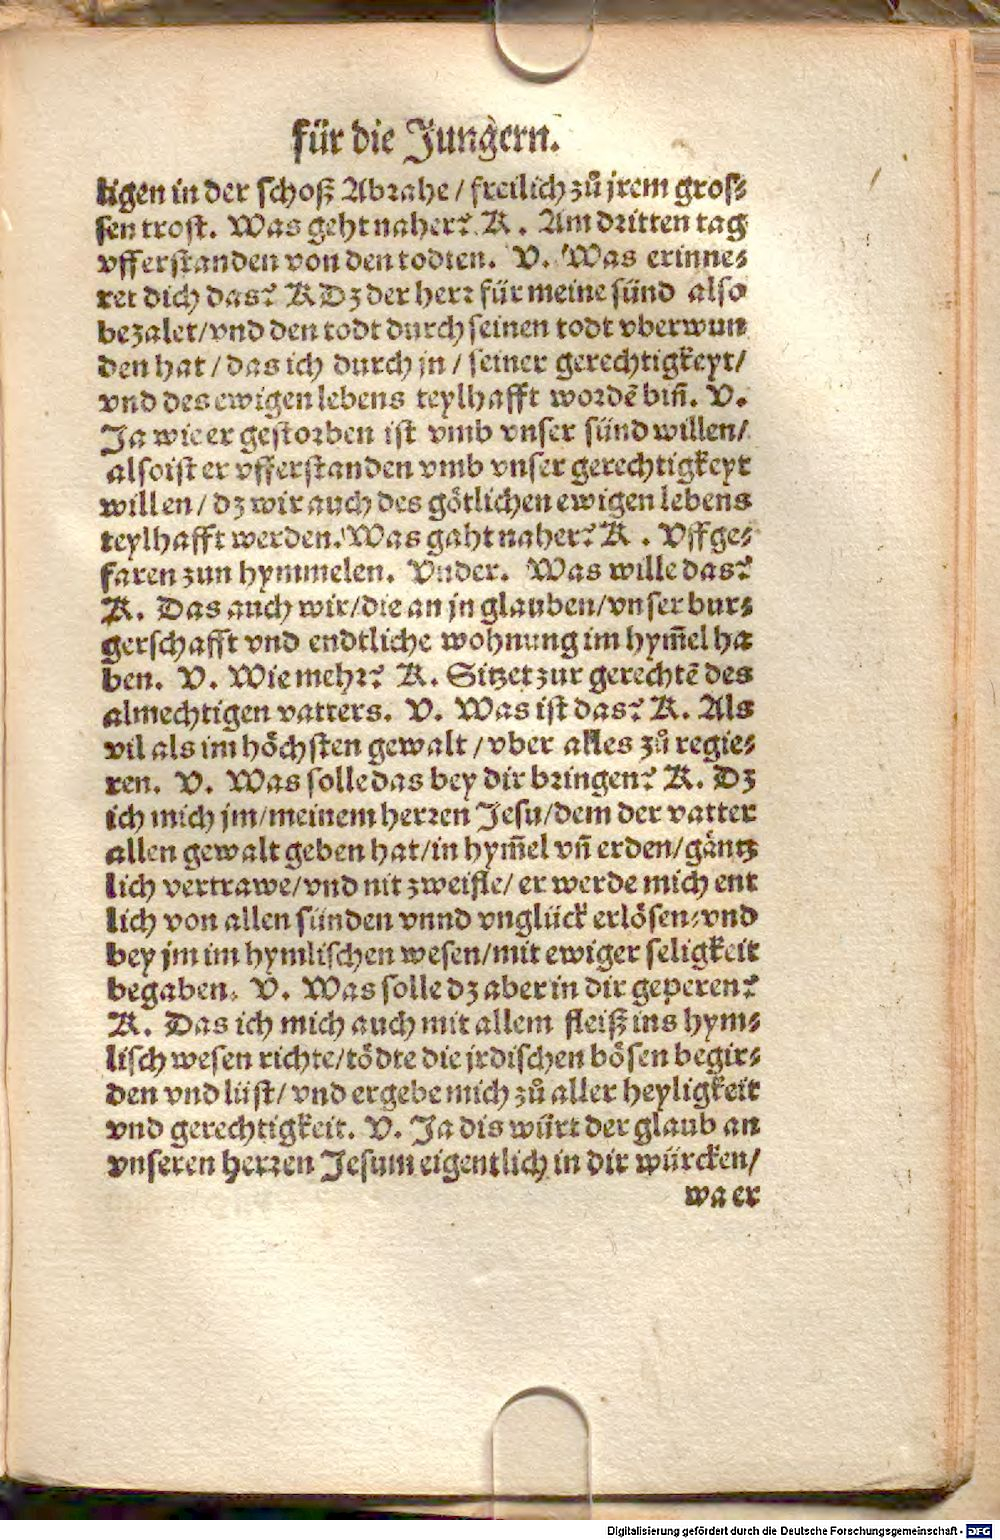 für die Jungern.
ligen in der schoß Abrahe / freilich zů jrem gros⸗
sen trost. Was geht naher? K. Am dritten tag
vfferstanden von den todten. V. Was erinne⸗
ret dich das? K Dz der herr für meine sünd also
bezalet / vnd den todt durch seinen todt vberwun
den hat / das ich durch jn / seiner gerechtigkeyt /
vnd des ewigen lebens teylhafft wordē biñ. V.
Ja wie er gestorben ist vmb vnser sünd willen /
also ist er vfferstanden vmb vnser gerechtigkeyt
willen / dz wir auch des götlichen ewigen lebens
teylhafft werden. Was gaht naher? K. Vffge⸗
faren zun hymmelen. Vnder. Was wille das?
K. Das auch wir / die an jn glauben / vnser bur⸗
gerschafft vnd endtliche wohnung im hym̃el ha
ben. V. Wie mehr? K. Sitzet zur gerechtē des
almechtigen vatters. V. Was ist das? K. Als
vil als im höchsten gewalt / vber alles zů regie⸗
ren. V. Was solle das bey dir bringen? K. Dz
ich mich jm / meinem herren Jesu / dem der vatter
allen gewalt geben hat / in hym̃el vñ erden / gäntz
lich vertrawe / vnd nit zweifle / er werde mich ent
lich von allen sünden vnnd vnglück erlösen / vnd
bey jm im hymlischen wesen / mit ewiger seligkeit
begaben. V. Was solle dz aber in dir geperen?
K. Das ich mich auch mit allem fleiß ins hym⸗
lisch wesen richte / tödte die jrdischen bösen begir⸗
den vnd lüst / vnd ergebe mich zů aller heyligkeit
vnd gerechtigkeit. V. Ja dis würt der glaub an
vnseren herren Jesum eigentlich in dir würcken /
wa er
Digitalisierung gefördert durch die Deutsche Forschungsgemeinschaft - DFG